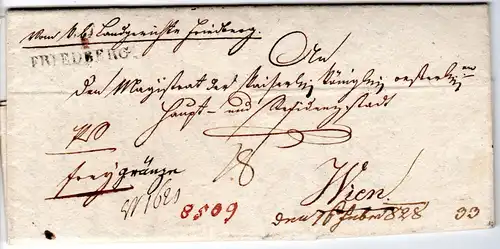 Vom K. b. Landgerichte Friedberg.
FRIEDBERG.
An
den Magistrat der Kaiserlich Königlich oesterreich
Haupt- und Residenzstadt
frey gränze
Wien.
N 1620
8509
828 33